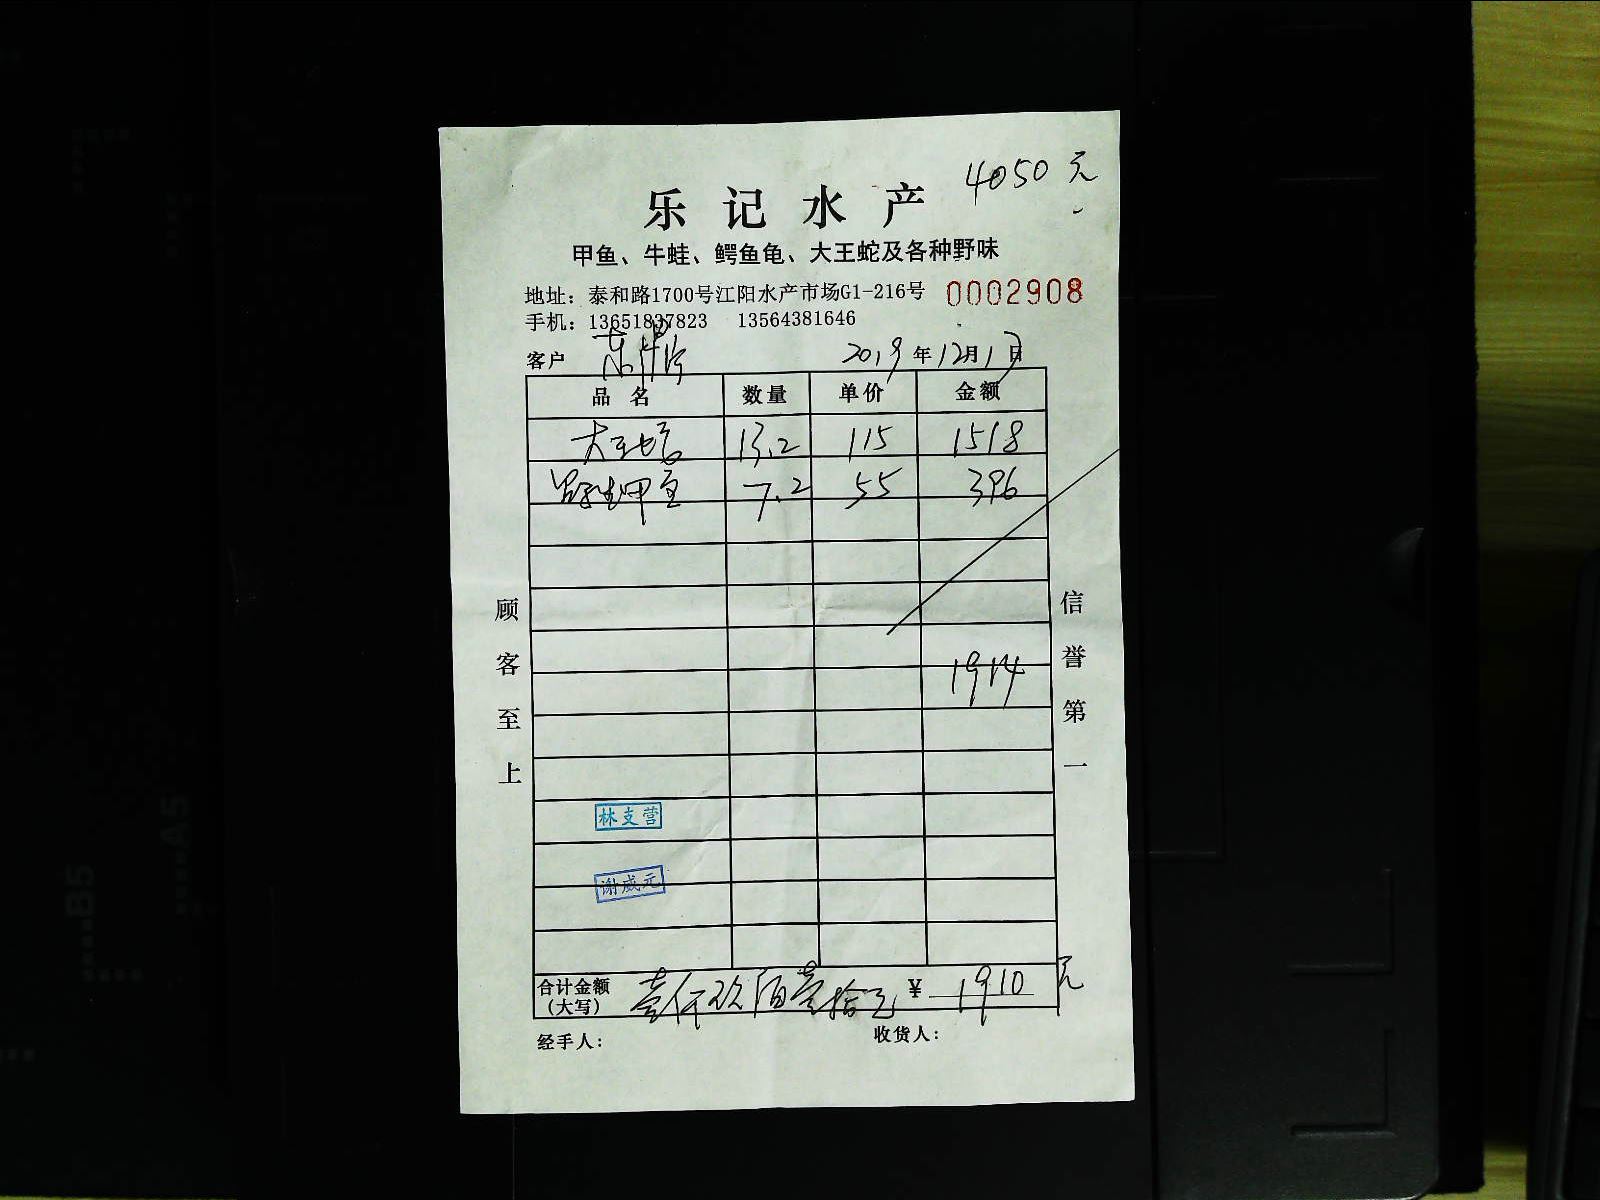 4050元
乐记水产
甲鱼、牛蛙、鳄鱼龟、大王蛇及各种野味
地址：泰和路1700号江阳水产市场G1-216号 0002908
手机：13651837823 13564381646
客户 2019年12月1日
品名 数量 单价 金额
大王蛇 13.2 115 1518
甲鱼 7.2 55 396
1914
顾客至上
信誉第一
林支营
谢成元
合计金额 壹仟玖佰壹拾元 ¥ 1910元
(大写)
经手人： 收货人：